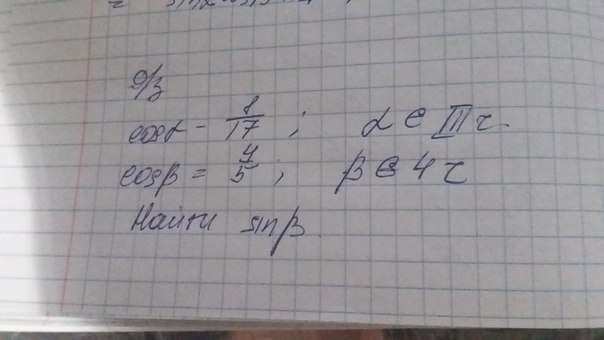 = sin
Д/з
cosα - 8/17 ; α ∈ III ч.
cosβ = 4/5 ; β ∈ 4 ч
Найти sinβ.